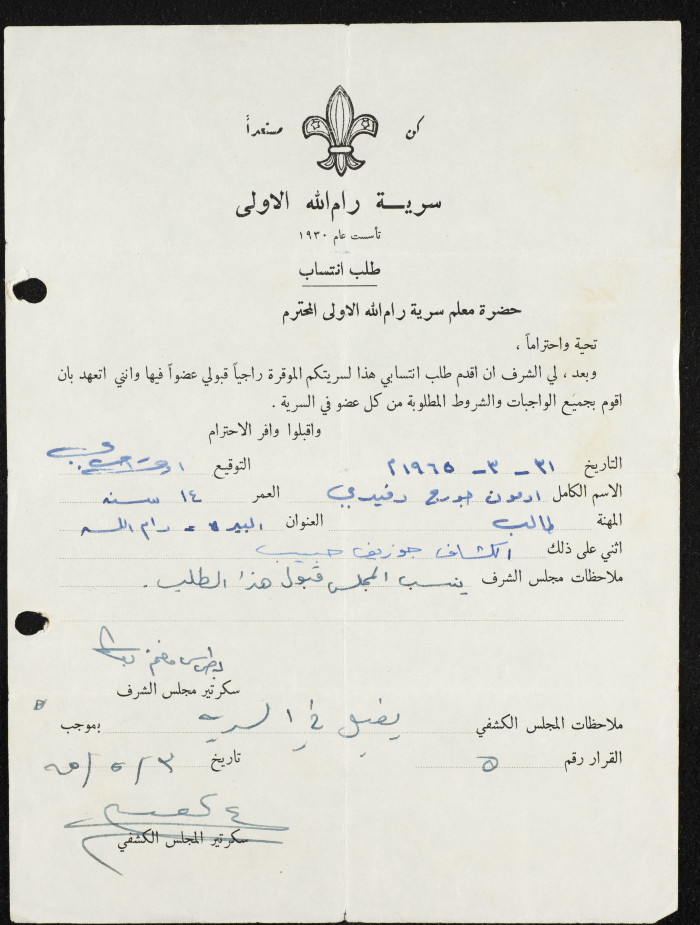 كن مستعداً
سرية رام الله الاولى
تأسست عام ١٩٣٠
طلب انتساب
حضرة معلم سرية رام الله الاولى المحترم
تحية واحتراماً ،
وبعد ، لي الشرف ان اقدم طلب انتسابي هذا لسريتكم الموقرة راجياً قبولي عضواً فيها وانني اتعهد بان
اقوم بجميع الواجبات والشروط المطلوبة من كل عضو في السرية .
واقبلوا وافر الاحترام
التاريخ ٣١ - ٣ - ١٩٦٥ م التوقيع
الاسم الكامل ادمون جورج العمر ١٤ سنه
المهنة طالب العنوان البيره - رام الله
اثني على ذلك الكشاف جوزيف حبيب
ملاحظات مجلس الشرف ينسب المجلس قبول هذا الطلب .
سكرتير مجلس الشرف
ملاحظات المجلس الكشفي يقبل في السرية بموجب
القرار رقم ٥ تاريخ ٣ / ٥ / ٦٥
سكرتير المجلس الكشفي